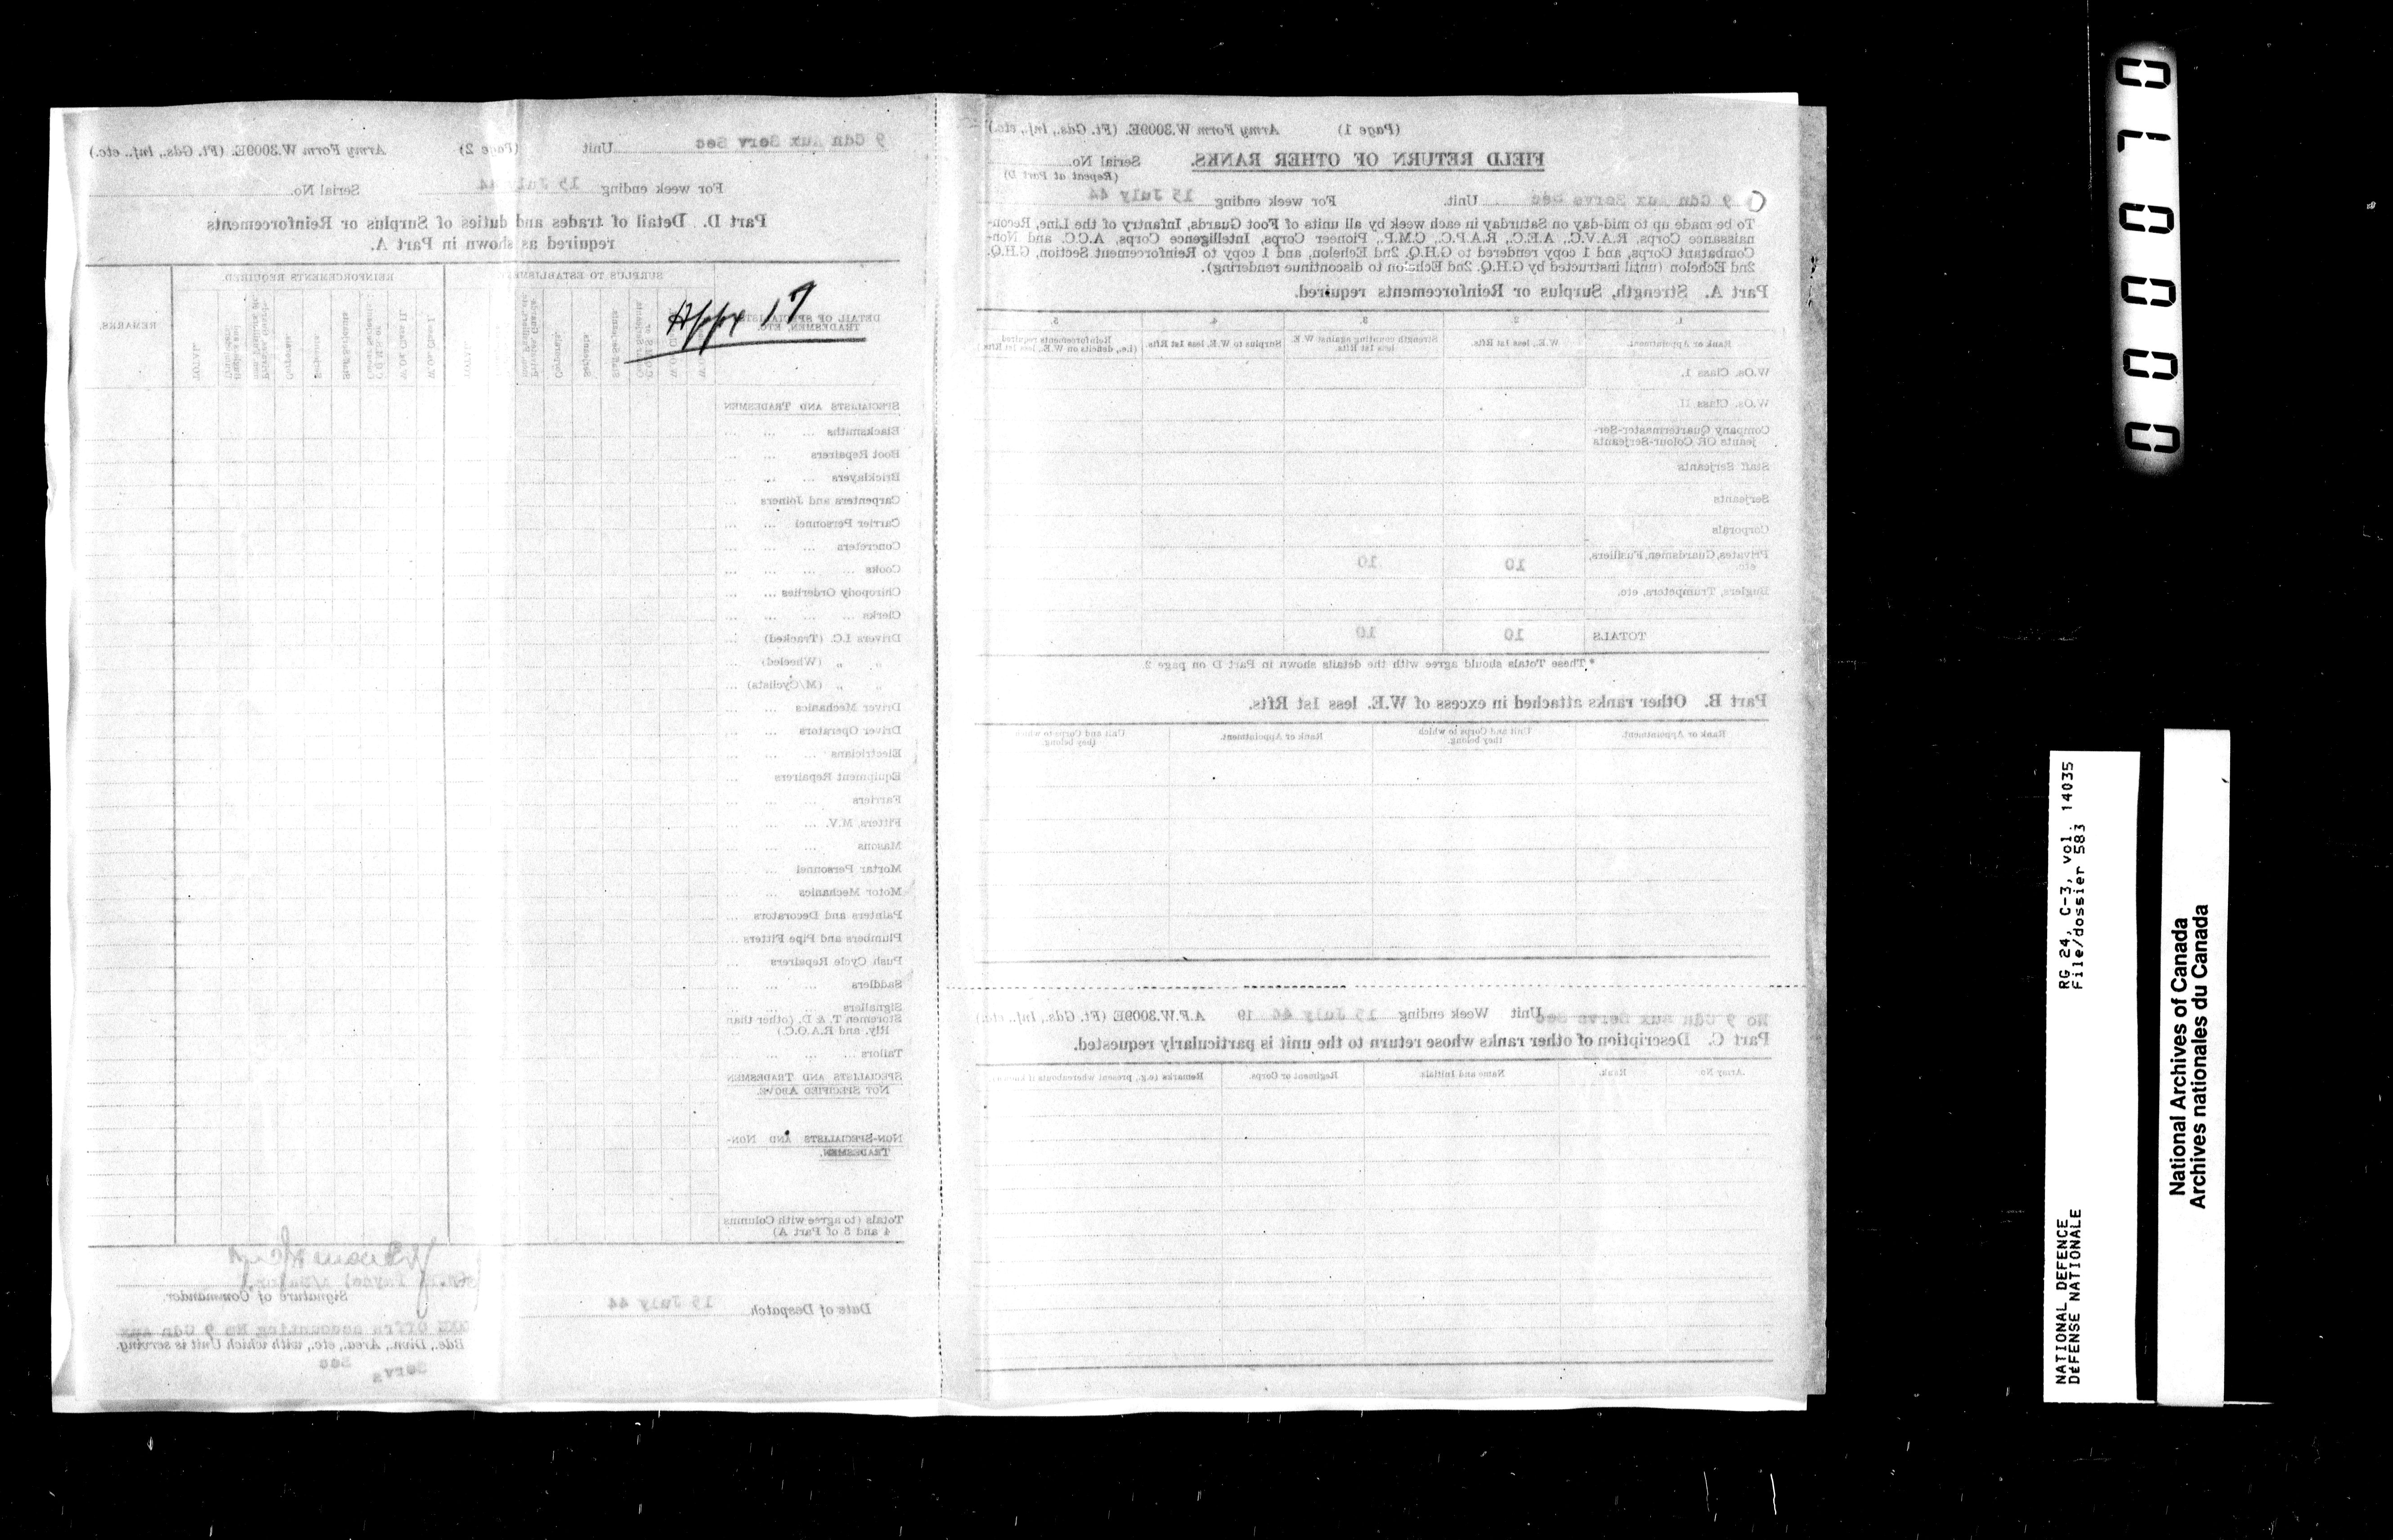 (Page 1) Army Form W.3009E. (Ft. Gds., Inf., etc.)
FIELD RETURN OF OTHER RANKS. Serial No.
(Repeat at Part D)
9 Cdn Aux Servs Sec Unit. For week ending 15 July 44
To be made up to mid-day on Saturday in each week by all units of Foot Guards, Infantry of the Line, Recon-
naissance Corps, R.A.V.C., A.E.C., R.A.P.C., C.M.P., Pioneer Corps, Intelligence Corps, A.C.C. and Non-
Combatant Corps, and 1 copy rendered to G.H.Q. 2nd Echelon, and 1 copy to Reinforcement Section, G.H.Q.
2nd Echelon (until instructed by G.H.Q. 2nd Echelon to discontinue rendering).
Part A. Strength, Surplus or Reinforcements required.
1. 2. 3. 4. 5.
Rank or Appointment. W.E. less 1st Rfts. Strength counting against W.E. less 1st Rfts. Surplus to W.E. less 1st Rfts. Reinforcements required (i.e., deficits on W.E. less 1st Rfts.)
W.Os. Class I.
W.Os. Class II.
Company Quartermaster-Ser-
jeants OR Colour-Serjeants
Staff Serjeants
Serjeants
Corporals
Privates, Guardsmen, Fusiliers, etc. 10 10
Buglers, Trumpeters, etc.
TOTALS 10 10
* These Totals should agree with the details shown in Part D on page 2
Part B. Other ranks attached in excess of W.E. less 1st Rfts.
Rank or Appointment. Unit and Corps to which they belong. Rank or Appointment. Unit and Corps to which they belong.
No 9 Cdn Aux Servs Sec Unit Week ending 15 July 44 19 A.F.W.3009E (Ft. Gds., Inf., etc.)
Part C. Description of other ranks whose return to the unit is particularly requested.
Army No. Rank. Name and Initials. Regiment or Corps. Remarks (e.g., present whereabouts if known)
9 Cdn Aux Serv Sec Unit (Page 2) Army Form W.3009E. (Ft. Gds., Inf., etc.)
For week ending 15 July 44 Serial No.
Part D. Detail of trades and duties of Surplus or Reinforcements
required as shown in Part A.
Appx 17
DETAIL OF SPECIALISTS
TRADESMEN, ETC.
SURPLUS TO ESTABLISHMENT
REINFORCEMENTS REQUIRED.
REMARKS.
Staff Serjeants
Serjeants
Corporals
TOTAL
W.Os. Class I.
W.Os. Class II.
Staff Serjeants
Serjeants
Corporals
TOTAL
SPECIALISTS AND TRADESMEN
Blacksmiths
Boot Repairers
Bricklayers
Carpenters and Joiners
Carrier Personnel
Concreters
Cooks
Chiropody Orderlies
Clerks
Drivers I.C. (Tracked)
" " (Wheeled)
" " (M/Cyclists)
Driver Mechanics
Driver Operators
Electricians
Equipment Repairers
Farriers
Fitters M.V.
Masons
Mortar Personnel
Motor Mechanics
Painters and Decorators
Plumbers and Pipe Fitters
Push Cycle Repairers
Saddlers
Signallers
Storemen T. & D. (other than
Rly. and R.A.O.C.)
Tailors
SPECIALISTS AND TRADESMEN
NOT SPECIFIED ABOVE.
NON-SPECIALISTS AND NON-
TRADESMEN.
Totals (to agree with Columns
4 and 5 of Part A)
Date of Despatch 15 July 44
Signature of Commander.
Offr accounting No 9 Cdn Aux
Bde., Divn., Area., etc., with which Unit is serving.
Servs Sec
00070
RG 24, C-3, vol. 14035
File/dossier 583
NATIONAL DEFENCE
DÉFENSE NATIONALE
National Archives of Canada
Archives nationales du Canada